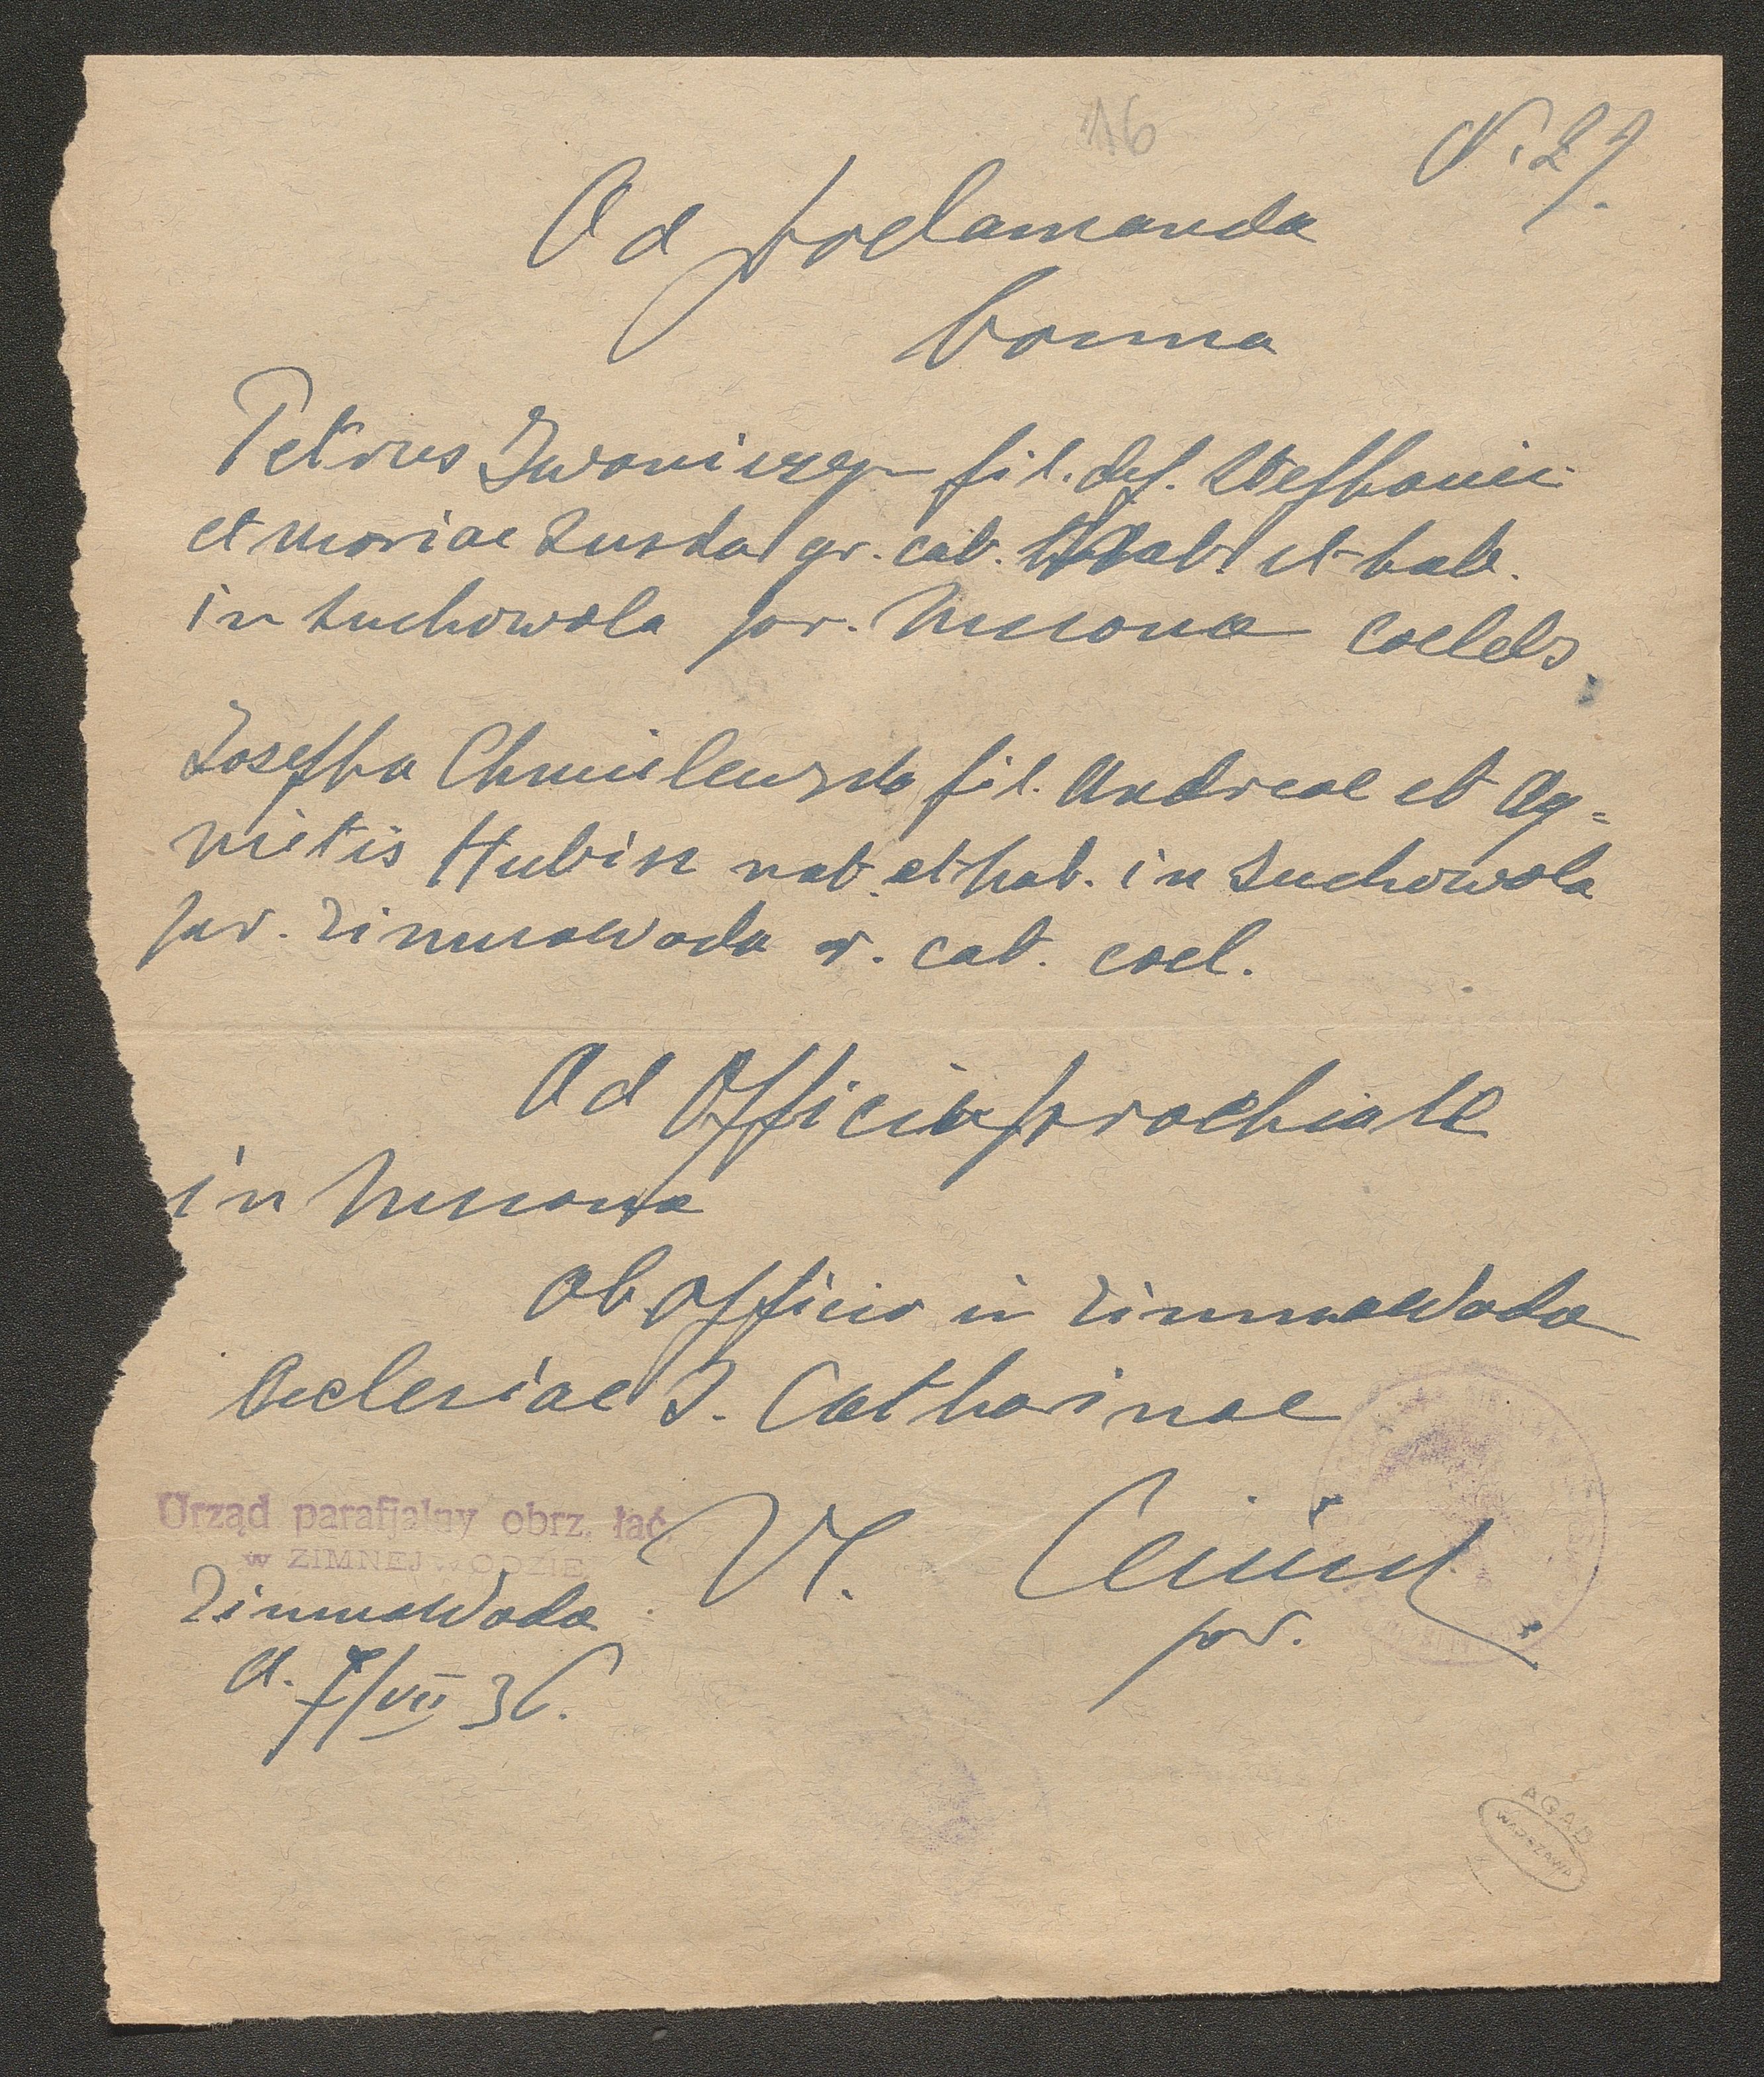 16
N. 27.
Ad proclamanda
banna
Petrus Iwaniczyn fil. def. Stephani
et Mariae Duda gr. cat. nat. et hab.
in Suchowola par. Mszana coelebs,
Josepha Chmielewska fil. Andreae et Ag-
nietis Hubisz nat. et hab. in Suchowola
par. Zimnawoda r. cat. coel.
Ad Officium parochiale
in Mszana
Ab officio in Zimnawoda
Ecclesiae S. Catharinae
Urząd parafjalny obrz. łać.
w ZIMNEJWODZIE
Zimnawoda
d. 7/VII 36.
par.
AGAD
WARSZAWA